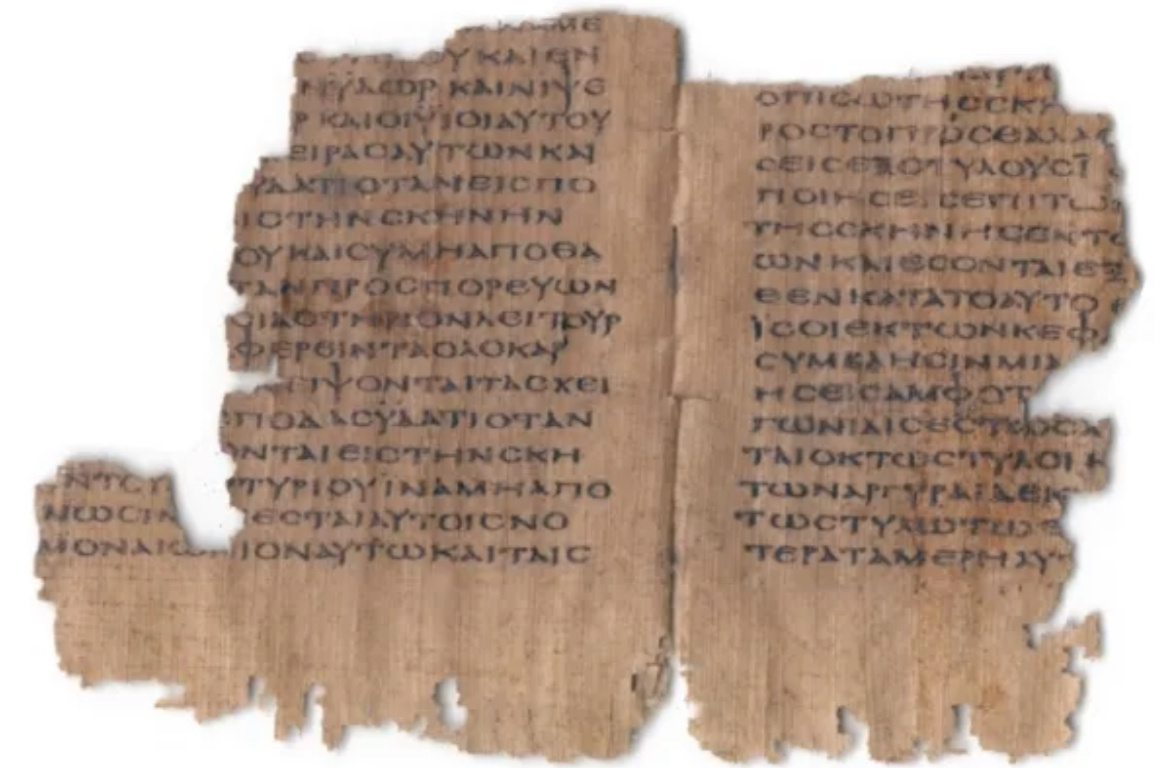 ΜΕ
Υ ΚΑΙ ΕΝ
ΥΔΩΡ ΚΑΙ ΝΙΨΕ
Ρ ΚΑΙ ΟΙ ΥΙΟΙ ΑΥΤΟΥ
ΕΙΡΑϹ ΑΥΤΩΝ ΚΑΙ
ΥΔΑΤΙ ΟΤΑΝ ΕΙϹΠΟ
ΙϹ ΤΗΝ ϹΚΗΝΗΝ
ΟΥ ΚΑΙ ΟΥ ΜΗ ΑΠΟΘΑ
ΤΑΝ ΠΡΟϹΠΟΡΕΥΩΝ
ϹΙΑϹΤΗΡΙΟΝ ΛΕΙΤΟΥΡ
ΦΕΡΕΙΝ ΤΑ ΟΛΟΚΑΥ
ΕΙΨΟΝΤΑΙ ΤΑϹ ΧΕΙ
ΠΟΔΑϹ ΥΔΑΤΙ ΟΤΑΝ
ΟΝΤΑΙ ΕΙϹ ΤΗΝ ϹΚΗ
ΝΤΟΥ ΤΥΡΙΟΥ ΙΝΑ ΜΗ ΑΠΟ
ΝΩϹΙΝ ΕϹΤΑΙ ΑΥΤΟΙϹ ΝΟ
ΜΟΝ ΑΙΩ ΙΟΝ ΑΥΤΩ ΚΑΙ ΤΑΙϹ
ΟΠΙϹΩ ΤΗϹ ϹΚΗ
ΡΟϹ ΤΟ ΠΡΟϹ ΘΑΛΑϹ
ϹΕΙϹ ΕΞ ϹΤΥΛΟΥϹ
ΠΟΙΗϹΕΙϹ ΕΠΙ ΤΩΝ
ΤΗϹ ϹΚΗΝΗϹ ΕΚ ΤΩ
ΩΝ ΚΑΙ ΕϹΟΝΤΑΙ ΕΞ
ΕΘΕΝ ΚΑΤΑ ΤΟ ΑΥΤΟ Ε
ΙϹΟΙ ΕΚ ΤΩΝ ΚΕΦ
ϹΥΜΒΛΗϹΙΝ ΜΙΑ
ΗϹΕΙϹ ΑΜΦΟΤ
ΓΩΝΙΑΙϹ ΕϹΤΩϹΑ
ΤΑΙ ΟΚΤΩ ϹΤΥΛΟΙ Κ
ΤΩΝ ΑΡΓΥΡΑΙ ΔΕΚ
ΤΩ ϹΤΥΛΩ ΤΩ Ε
ΤΕΡΑ ΤΑ ΜΕΡΗ ΑΥΤ